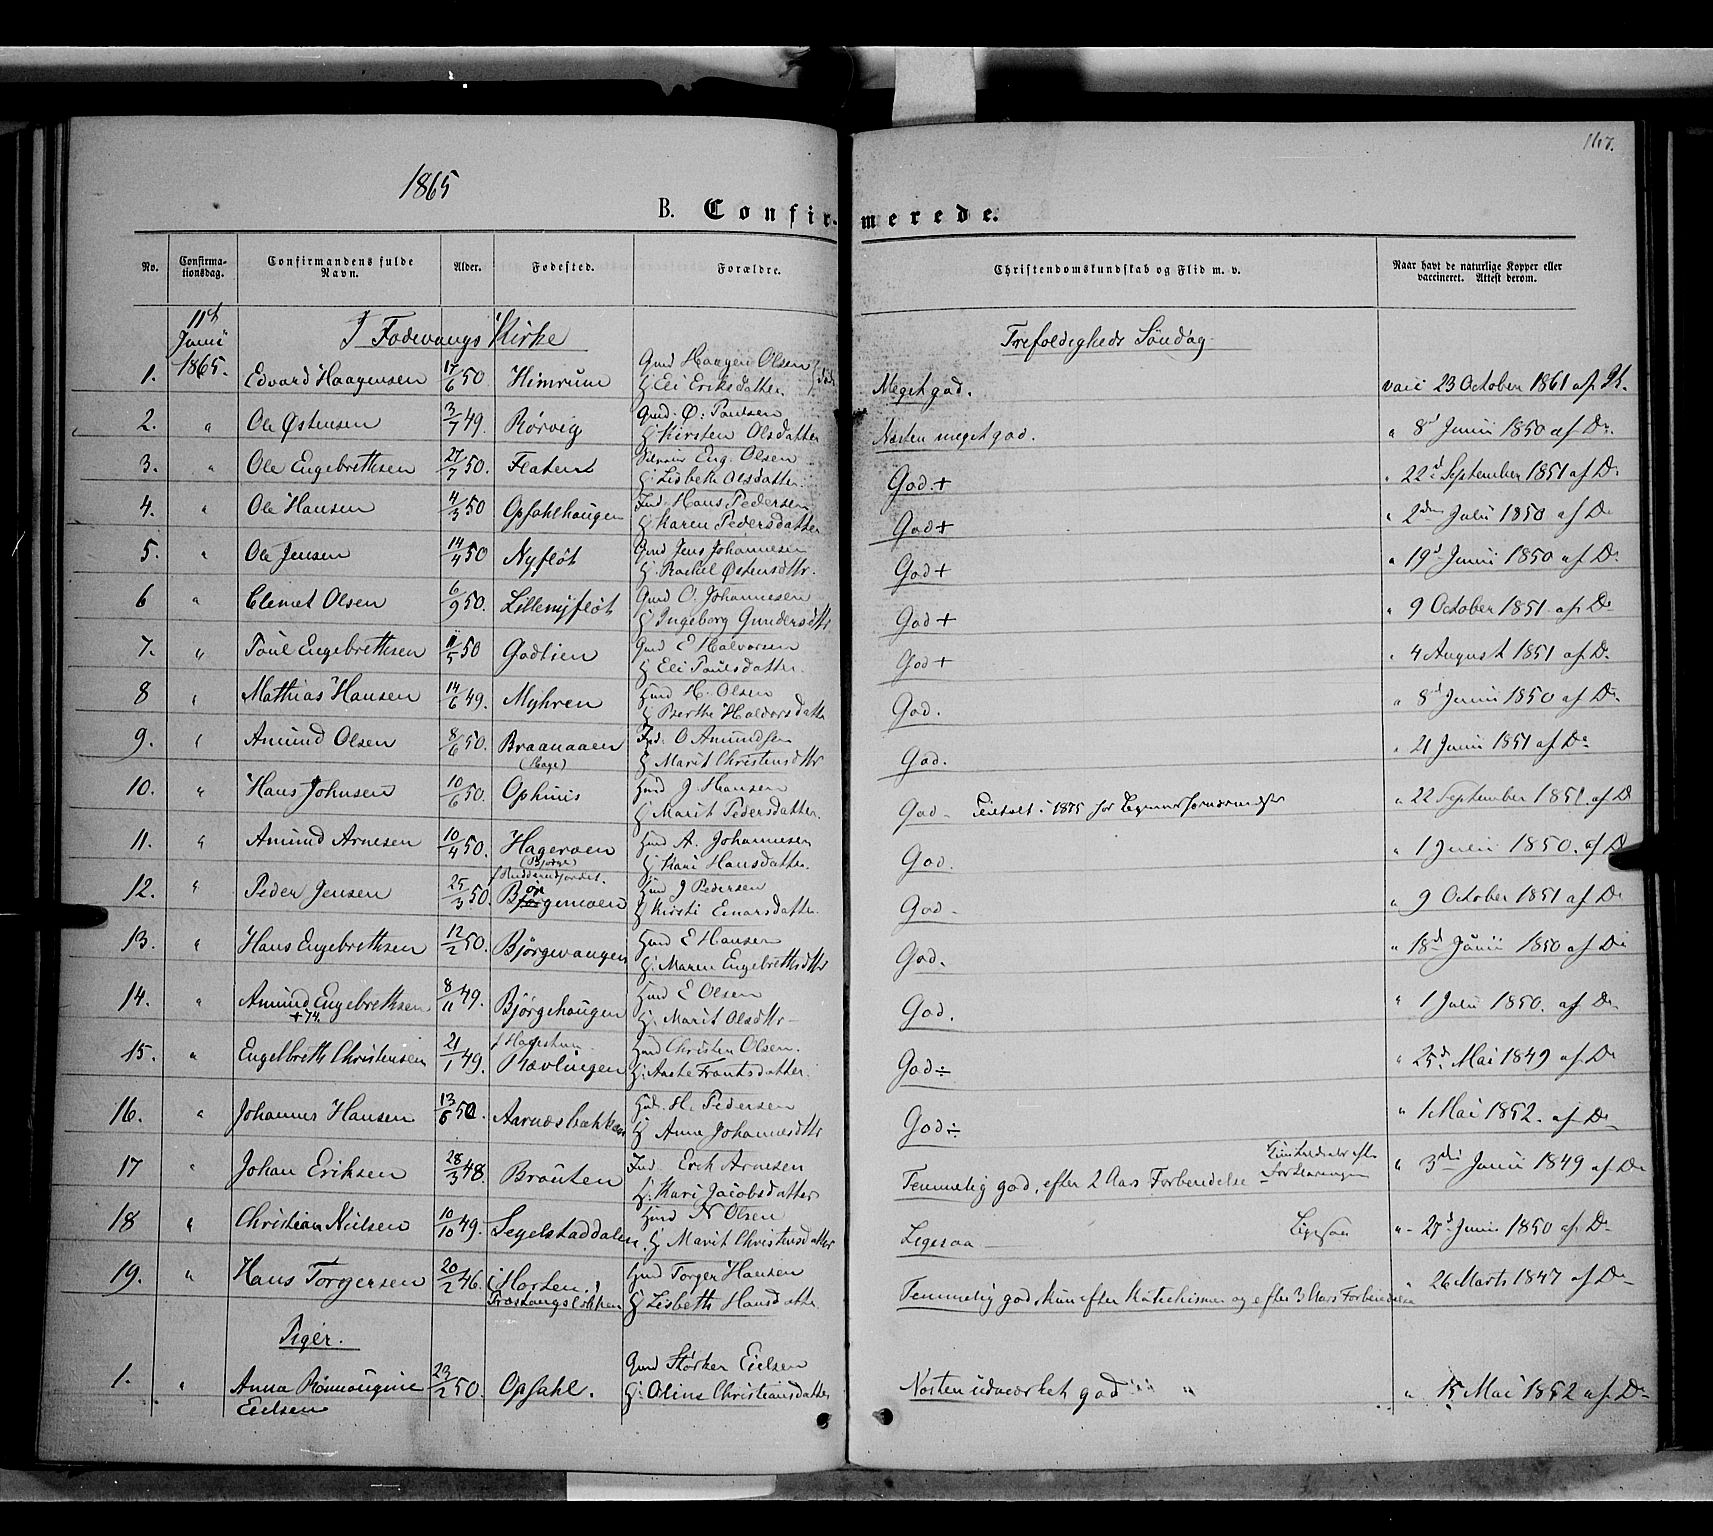 167.
1865
B. Confirmerede.
No. Confirmationsdag. Confirmandens fulde Navn. Alder. Fødested. Forældre. Christendomskundskab og Flid m. v. Naar havt de naturlige Kopper eller vaccineret. Attest derom.
11te Junii 1865. I Fodvangs Kirke Trefoldigheds Søndag
1. Edvard Haagensen 17/6 50 Himrum Gmd Haagen Olsen
H. Eli Eriksdatter Meget god. vacc 23 October 1861 af
2. " Ole Østensen 3/7 49. Rørvig Gmd. Ø. Paulsen
H. Kirsten Olsdatter Næsten meget god. " 8d Junii 1850 af Do.
3. " Ole Engebrethsen 27/7 50. Flaten Eng. Olsen
H. Lisbeth Olsdatter. God.+ " 22d September 1851 af Do
4. " Ole Hansen 4/3 50 Opsahlhaugen Ind. Hans Pedersen
H. Karen Pedersdatter God+ " 2den Julii 1850 af Do
5. " Ole Jensen 14/4 50 Nyfløt Gmd Jens Johannesen
H. Rachel Østensdttr. God+ " 19d Junii 1850 af Do
6 " Clemet Olsen 6/9 50. Lillenyfløt Gmd O. Johannesen
H Ingeborg Gundersdttr God+ " 9 October 1851. af Do
7. " Poul Engebrethsen /5 50 Godlien Gmd E Halvorsen
H Eli Poulsdatter. God+ " 4 August 1851 af Do
8 " Mathias Hansen 14/6 49. Myhren Hmd H. Olsen
H Berthe Halvorsdatter God. " 8d Junii 1850 af Do
9. " Amund Olsen 8/6 50. Braanaaen Ind. O Amundsen
H Marit Christensdttr God. " 21 Junii 1851 af Do
10. " Hans Johnsen 10/6 50. Ophuus Hmd J. Hansen
H. Marit Pedersdatter. God - i 1875 for " 22 September 1851 af Do
11. " Amund Arnesen 10/4 50. Hageroen
(Bjørge) Hmd A. Johannesen
H. Kari Hansdatter. God. " 1 Julii 1850. af Do
12. " Peder Jensen 25/3 50. Bjørgemoen Hmd J Pedersen
H Kirsti Emarsdatter. God - " 9 October 1851 af Do
13. " Hans Engebrethsen 12/2 50. Bjørgevangen Hmd E Hansen
H. Maren Engebrethsdttr God. " 18d Junii 1850 af Do
14. " Amund Engebrethsen
+74. 8/11 49. Bjørgehaugen Hmd E Olsen
H. Marit Olsdttr - God. " 1 Julii 1850. af Do
15. " Engelbreth Christensen 21/1 49. Rævlingen Hmd Christen Olsen.
H. Aaste Frantsdatter. God÷ " 25d Mai 1849 af Do
16. " Johannes Hansen 13/6 50. Aarnæsbakken Hmd. H. Pedersen
H Anne Johannesdttr God÷ " 1 Mai 1852. af Do
17 " Johan Eriksen 28/3 48. Bråuten Ind. Erik Arnesen
H. Kari Jacobsdatter Temmelig god, efter 2 Aars Forberedelse efter Forklaringen " 3die Junii 1849 af Do
18 " Christian Nielsen 10/10 49. Segelstaddalen Hmd N Olsen
H Marit Christensdatter Ligesaa - Ligesaa " 27d Junii 1850 af Do
19. " Hans Torgersen 20/2 46. (Horten.) Hmd Torger Hansen
H Lisbeth Hansdatter Temmelig god, kun efter Katechismen og efter 3 Aars Forberedelse " 26 Marts 1847 af Do
Piger.
1. " Anna Rønnaugine
Eielsen 23/2 50. Opsahl. Gmd Størker Eielsen
H. Oline Christiansdatter Næsten udmærket god " 15 Mai 1852 af Do